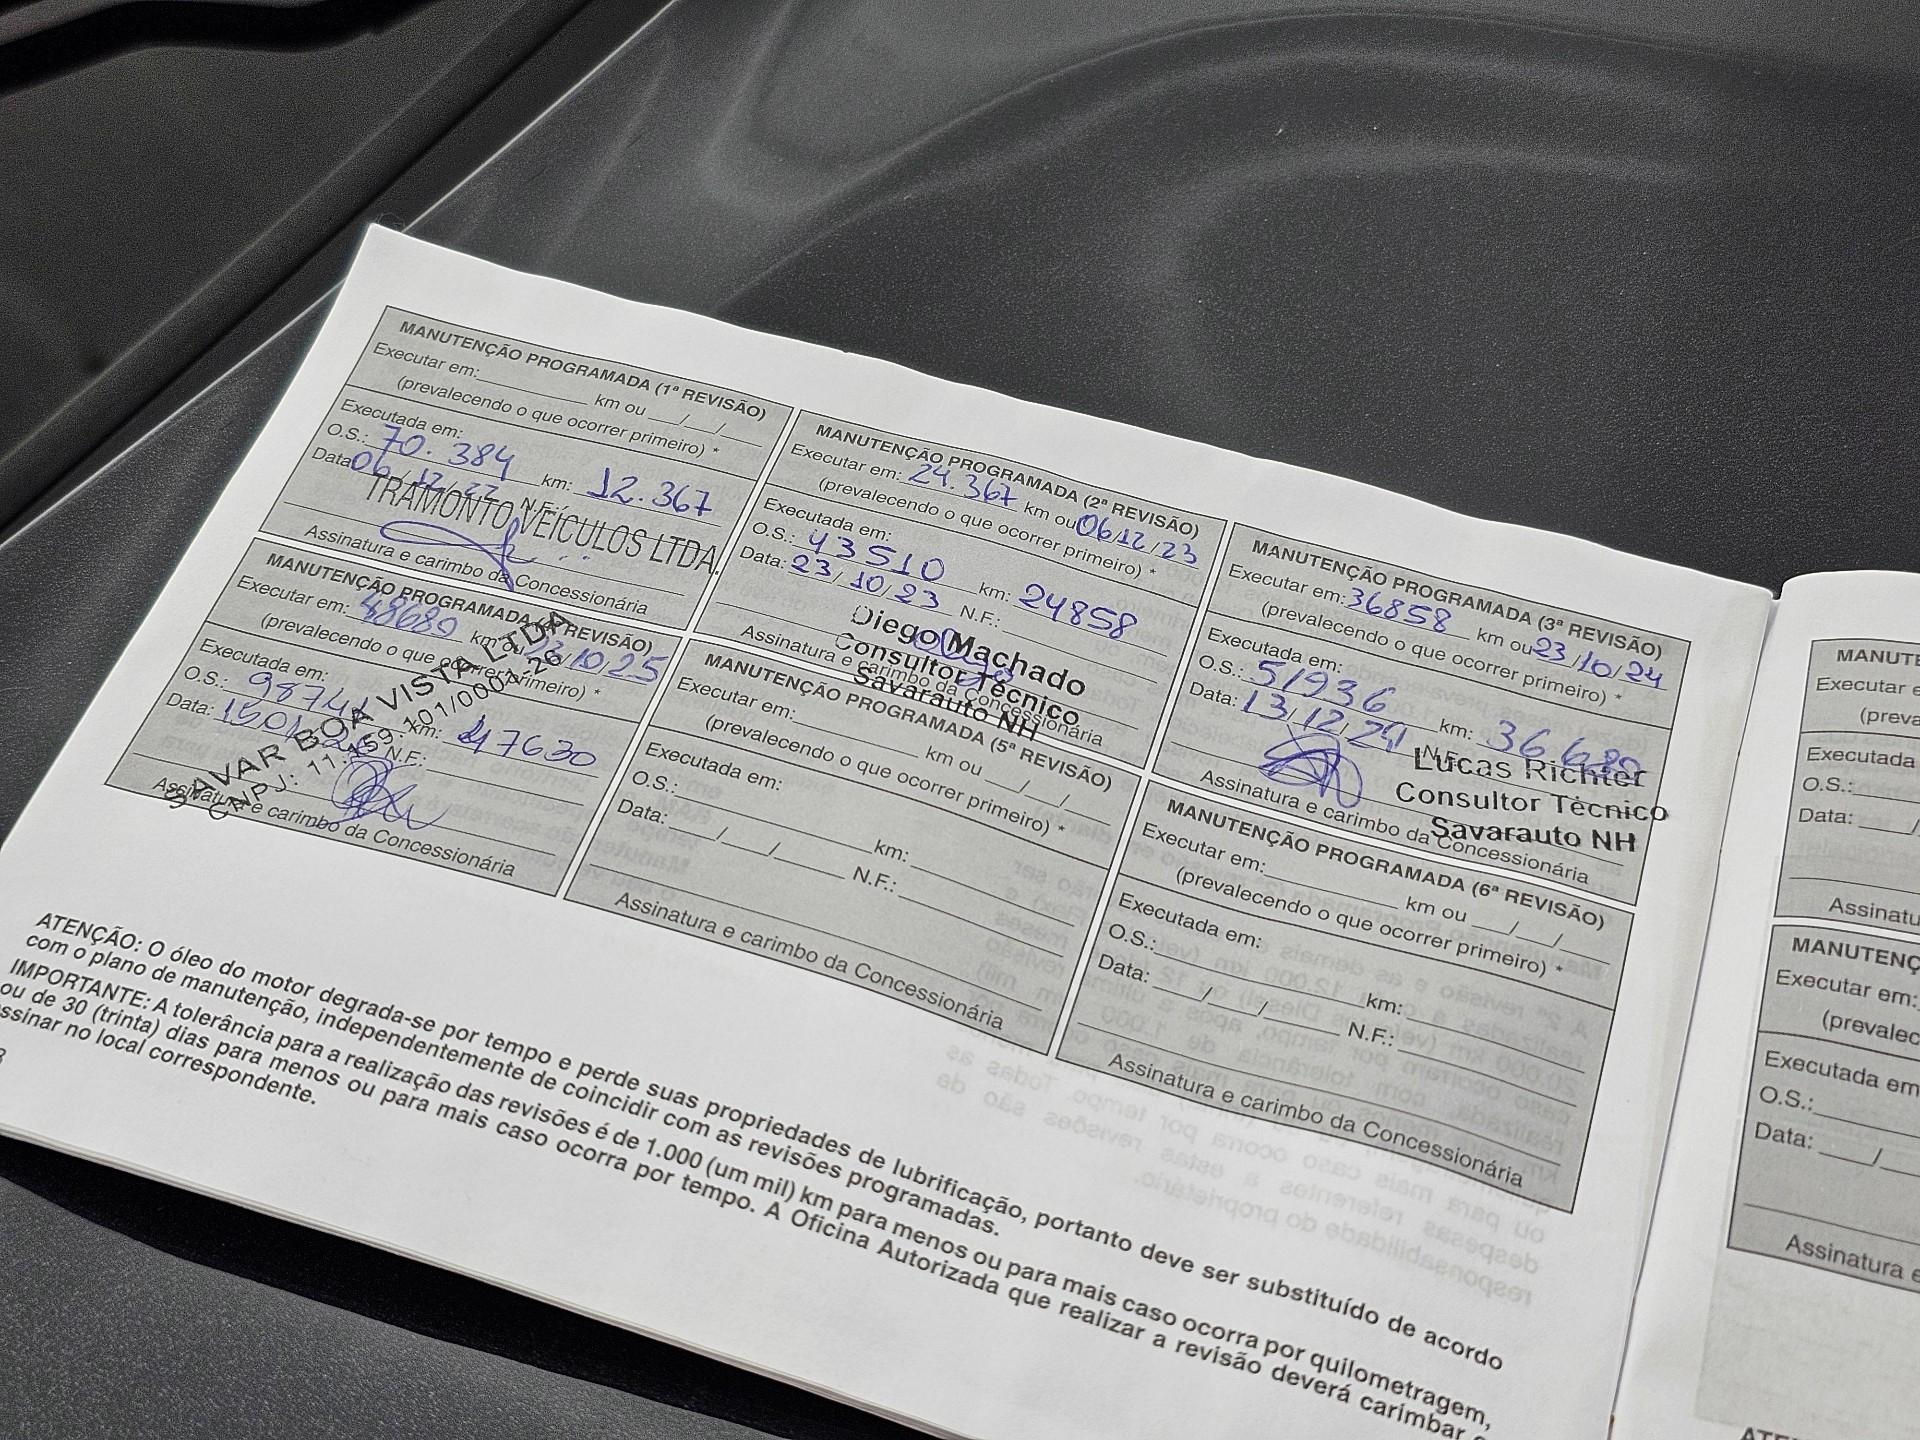 MANUTENÇÃO PROGRAMADA (1ª REVISÃO)
Executar em: km ou / /
(prevalecendo o que ocorrer primeiro) *
Executada em:
O.S.: 70.384 km: 12.367
Data: 06/12/22 N.F.:
TRAMONTO VEÍCULOS LTDA.
Assinatura e carimbo da Concessionária
MANUTENÇÃO PROGRAMADA (2ª REVISÃO)
Executar em: 24.367 km ou 06/12/23
(prevalecendo o que ocorrer primeiro) *
Executada em:
O.S.: 43510 km: 24858
Data: 23/10/23 N.F.:
Diego Machado
Consultor Técnico
Savarauto NH
Assinatura e carimbo da Concessionária
MANUTENÇÃO PROGRAMADA (3ª REVISÃO)
Executar em: 36858 km ou 23/10/24
(prevalecendo o que ocorrer primeiro) *
Executada em:
O.S.: 51936 km: 36.689
Data: 13/12/24 N.F.:
Lucas Richter
Consultor Técnico
Savarauto NH
Assinatura e carimbo da Concessionária
MANUTENÇÃO PROGRAMADA REVISÃO)
Executar em: 48689 km ou /10/25
(prevalecendo o que ocorrer primeiro) *
Executada em:
O.S.: km: 47630
Data: N.F.:
SAVAR BOA VISTA LTDA
Assinatura e carimbo da Concessionária
MANUTENÇÃO PROGRAMADA (5ª REVISÃO)
Executar em: km ou / /
(prevalecendo o que ocorrer primeiro) *
Executada em:
O.S.: km:
Data: / / N.F.:
Assinatura e carimbo da Concessionária
MANUTENÇÃO PROGRAMADA (6ª REVISÃO)
Executar em: km ou / /
(prevalecendo o que ocorrer primeiro) *
Executada em:
O.S.: km:
Data: / / N.F.:
Assinatura e carimbo da Concessionária
ATENÇÃO: O óleo do motor degrada-se por tempo e perde suas propriedades de lubrificação, portanto deve ser substituído de acordo
com o plano de manutenção, independentemente de coincidir com as revisões programadas.
IMPORTANTE: A tolerância para a realização das revisões é de 1.000 (um mil) km para menos ou para mais caso ocorra por quilometragem,
ou de 30 (trinta) dias para menos ou para mais caso ocorra por tempo. A Oficina Autorizada que realizar a revisão deverá carimbar e
ssinar no local correspondente.
MANUTE
Executar e
(preva
Executada
O.S.:
Data: /
Assinatu
MANUTENÇ
Executar em:
(prevalec
Executada em
O.S.:
Data: /
Assinatura e
ATE